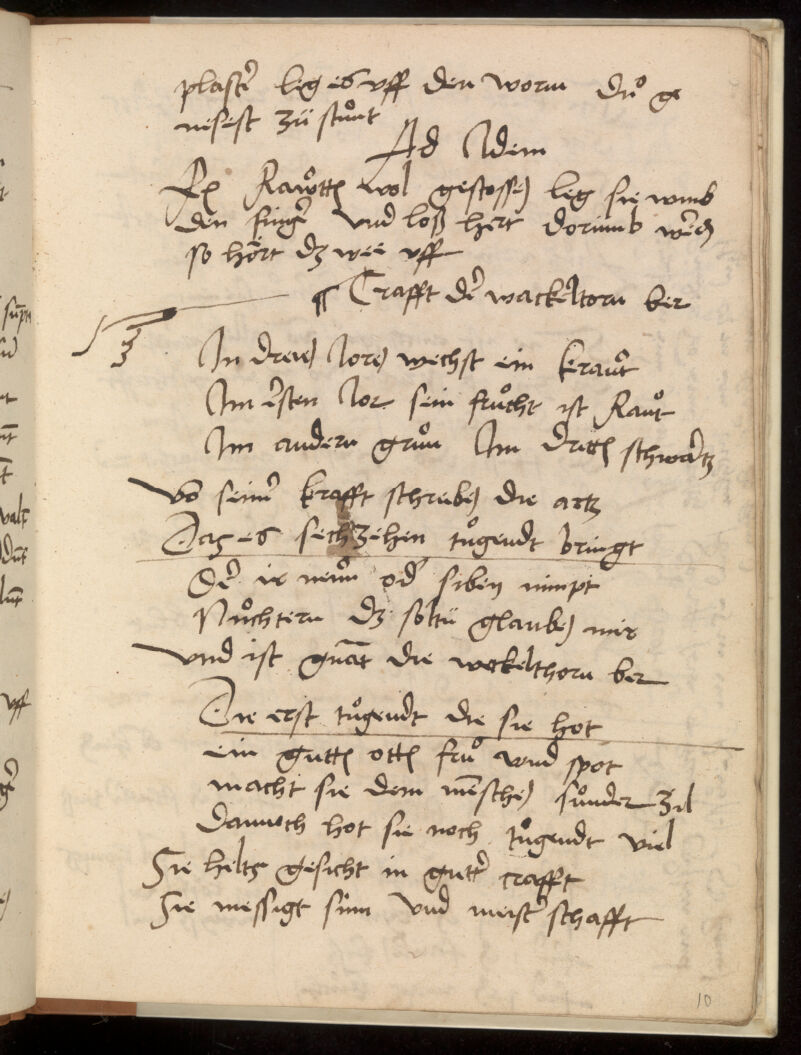 plaster leg es uff den worm du ge
nesest zü stunt
Ad Idem
Rx Rawtten wol gestossen leg sie umb
den finger und loß hert dorumb werden
so hört dz wee uff
¶ Crafft der wackeltorn ber
In dreien Joren wechst ein kraut
Im ersten Jor sein frucht ist Raut
Im andern grun Im dritten schwartz
Von seiner krafft schreiben die artz
Daz es sechzehen tugendt bringt
Der ir neun oder siben nimpt
Nuchtern dz soltu glauben mir
Und ist gnant die weckelthorn ber
Die erst tugendt die sie hot
ein gutten otten fru und spot
macht sie dem menschen sunder zil
Dannoch hot sie noch tugendt viel
Sie heltz gesicht in gutter crafft
Sie messigt sinn Und meisterschafft
10